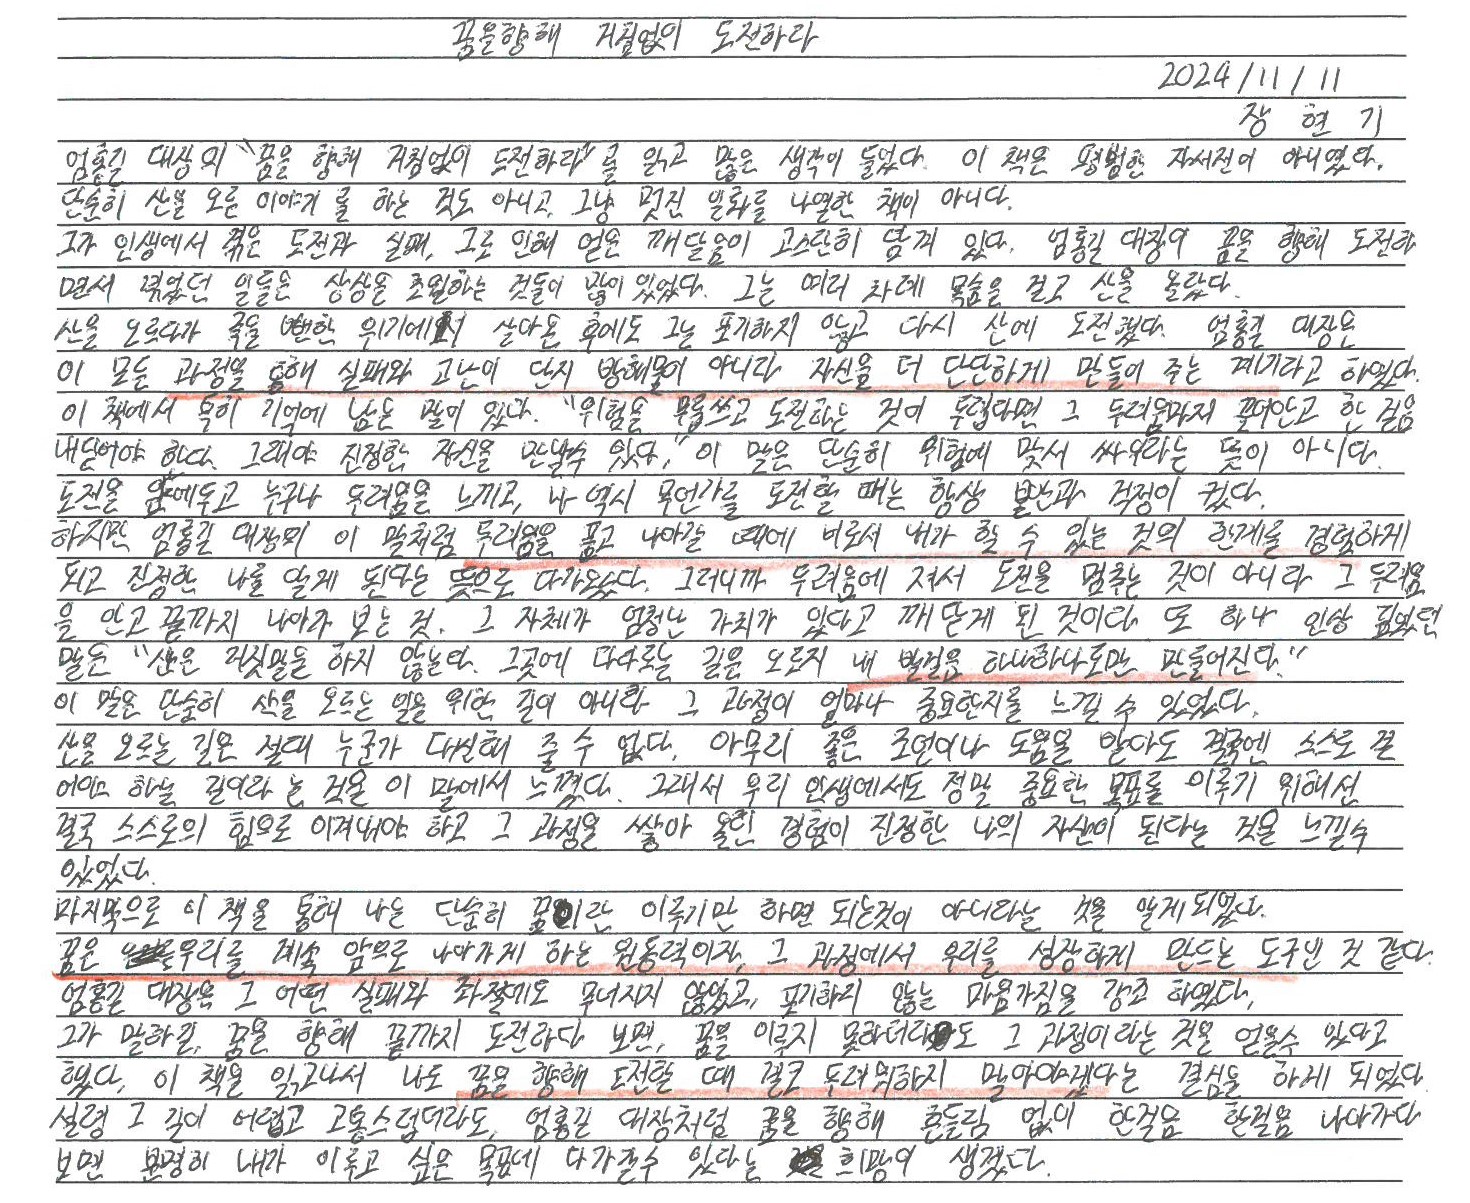 꿈을향해 거침없이 도전하라
2024/11/11
장 현 기
엄홍길 대장의 "꿈을 향해 거침없이 도전하라"를 읽고 많은 생각이 들었다. 이 책은 평범한 자서전이 아니였다.
단순히 산을 오른 이야기를 하는 것도 아니고, 그냥 멋진 일화를 나열한 책이 아니다.
그가 인생에서 겪은 도전과 실패, 그로 인해 얻은 깨달음이 고스란히 담겨 있다. 엄홍길 대장의 꿈을 향해 도전하
면서 겪었던 일들은 상상을 초월하는 것들이 많이 있었다. 그는 여러 차례 목숨을 걸고 산을 올랐다.
산을 오르다가 죽을 뻔한 위기에서 살아온 후에도 그는 포기하지 않고 다시 산에 도전했다. 엄홍길 대장은
이 모든 과정을 통해 실패와 고난이 단지 방해물이 아니라 자신을 더 단단하게 만들어 주는 계기라고 하였다.
이 책에서 특히 기억에 남은 말이 있다. "위험을 무릅쓰고 도전하는 것이 두렵다면 그 두려움마저 끌어안고 한 걸음
내딛어야 한다. 그래야 진정한 자신을 만날수 있다," 이 말은 단순히 위험에 맞서 싸우라는 뜻이 아니다.
도전을 앞에두고 누구나 두려움을 느끼고, 나 역시 무언가를 도전할 때는 항상 불안과 걱정이 컸다.
하지만 엄홍길 대장의 이 말처럼 두려움을 품고 나아갈 때에 비로서 내가 할 수 있는 것의 한계를 경험하게
되고 진정한 나를 알게 된다는 뜻으로 다가왔다. 그러니까 두려움에 져서 도전을 멈추는 것이 아니라 그 두려움
을 안고 끝까지 나아가 보는 것. 그 자체가 엄청난 가치가 있다고 깨닫게 된 것이다 또 하나 인상 깊었던
말은 "산은 거짓말을 하지 않는다. 그곳에 다다르는 길은 오로지 내 발걸음 하나하나로만 만들어진다."
이 말은 단순히 산을 오르는 일을 위한 길이 아니라 그 과정이 얼마나 중요한지를 느낄 수 있었다.
산을 오르는 길은 절대 누군가 대신해 줄 수 없다. 아무리 좋은 조언이나 도움을 받아도 결국엔 스스로 걸
어야 하는 길이라 는 것을 이 말에서 느꼈다. 그래서 우리 인생에서도 정말 중요한 목표를 이루기 위해선
결국 스스로의 힘으로 이겨내야 하고 그 과정을 쌓아 올린 경험이 진정한 나의 자산이 된다는 것을 느낄수
있었다.
마지막으로 이 책을 통해 나는 단순히 꿈이란 이루기만 하면 되는것이 아니라는 것을 알게되었다.
꿈은 우리를 계속 앞으로 나아가게 하는 원동력이자, 그 과정에서 우리를 성장하게 만드는 도구인 것 같다.
엄홍길 대장은 그 어떤 실패와 좌절에도 무너지지 않았고, 포기하지 않는 마음가짐을 강조 하였다,
그가 말하길, 꿈을 향해 끝까지 도전하다 보면, 꿈을 이루지 못하더라도 그 과정이라는 것을 얻을수 있다고
했다, 이 책을 읽고나서 나도 꿈을 향해 도전할 때 결코 두려워하지 말아야겠다는 결심을 하게 되었다.
설령 그 길이 어렵고 고통스럽더라도, 엄홍길 대장처럼 꿈을 향해 흔들림 없이 한걸음 한걸음 나아가다
보면 분명히 내가 이루고 싶은 목표에 다가갈수 있다는 희망이 생겼다.